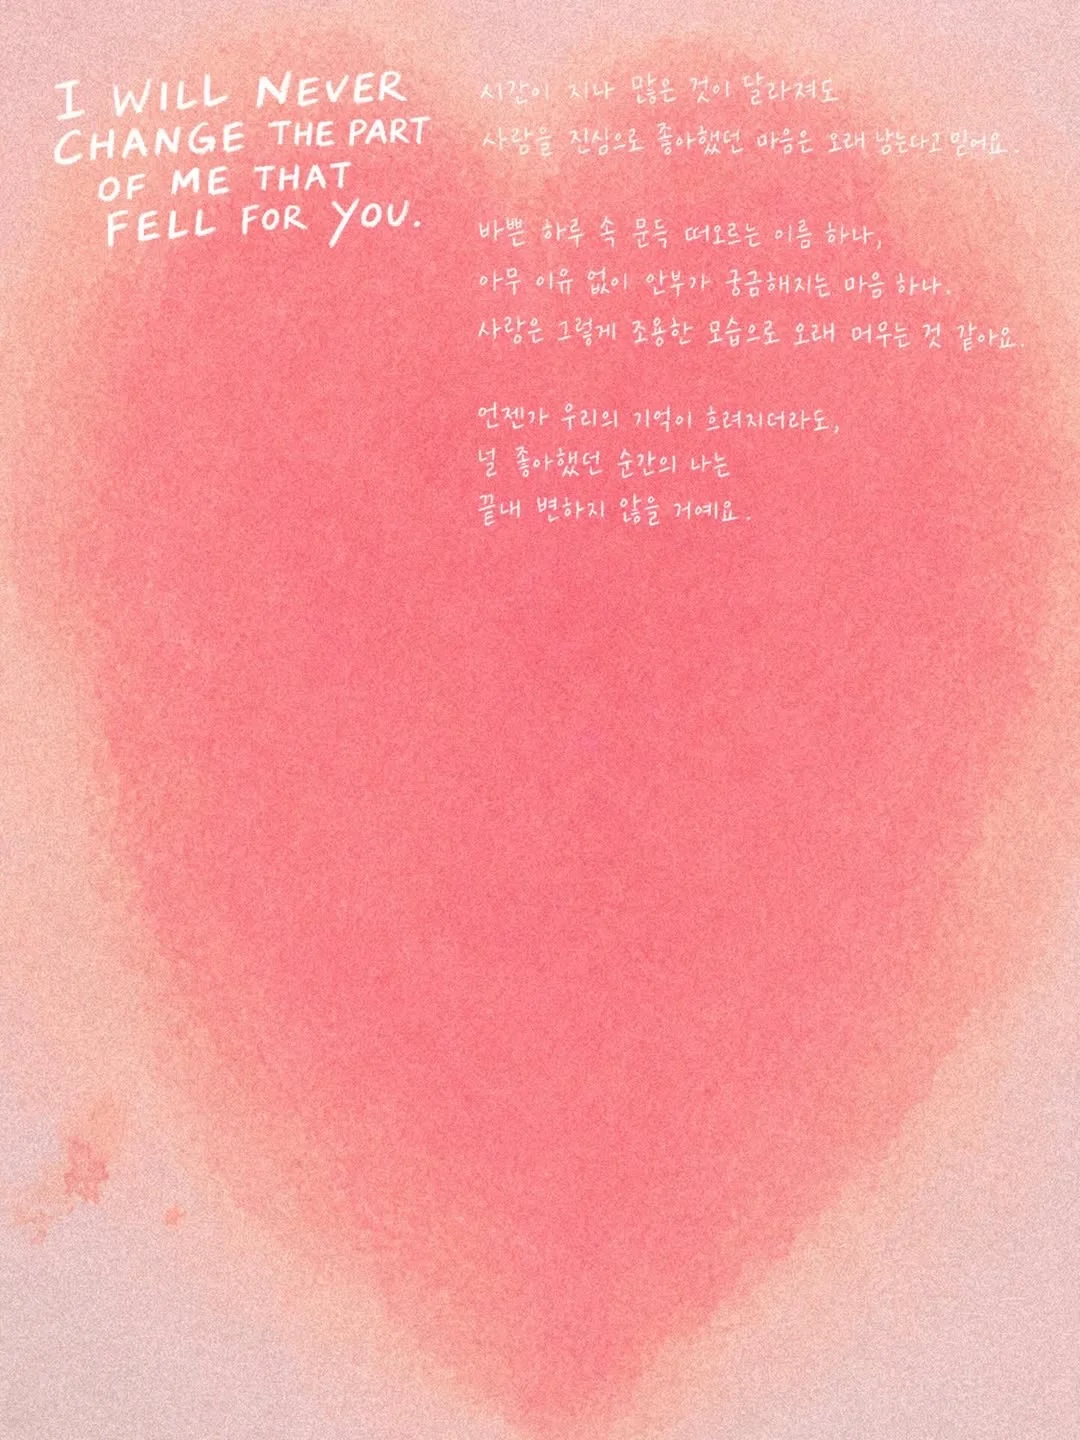 I WILL NEVER
CHANGE THE PART
OF ME THAT
FELL FOR YOU.
시간이 지나 많은 것이 달라져도
사람을 진심으로 좋아했던 마음은 오래 남는다고 믿어요.
바쁜 하루 속 문득 떠오르는 이름 하나,
아무 이유 없이 안부가 궁금해지는 마음 하나.
사랑은 그렇게 조용한 모습으로 오래 머무는 것 같아요.
언젠가 우리의 기억이 흐려지더라도,
널 좋아했던 순간의 나는
끝내 변하지 않을 거예요.